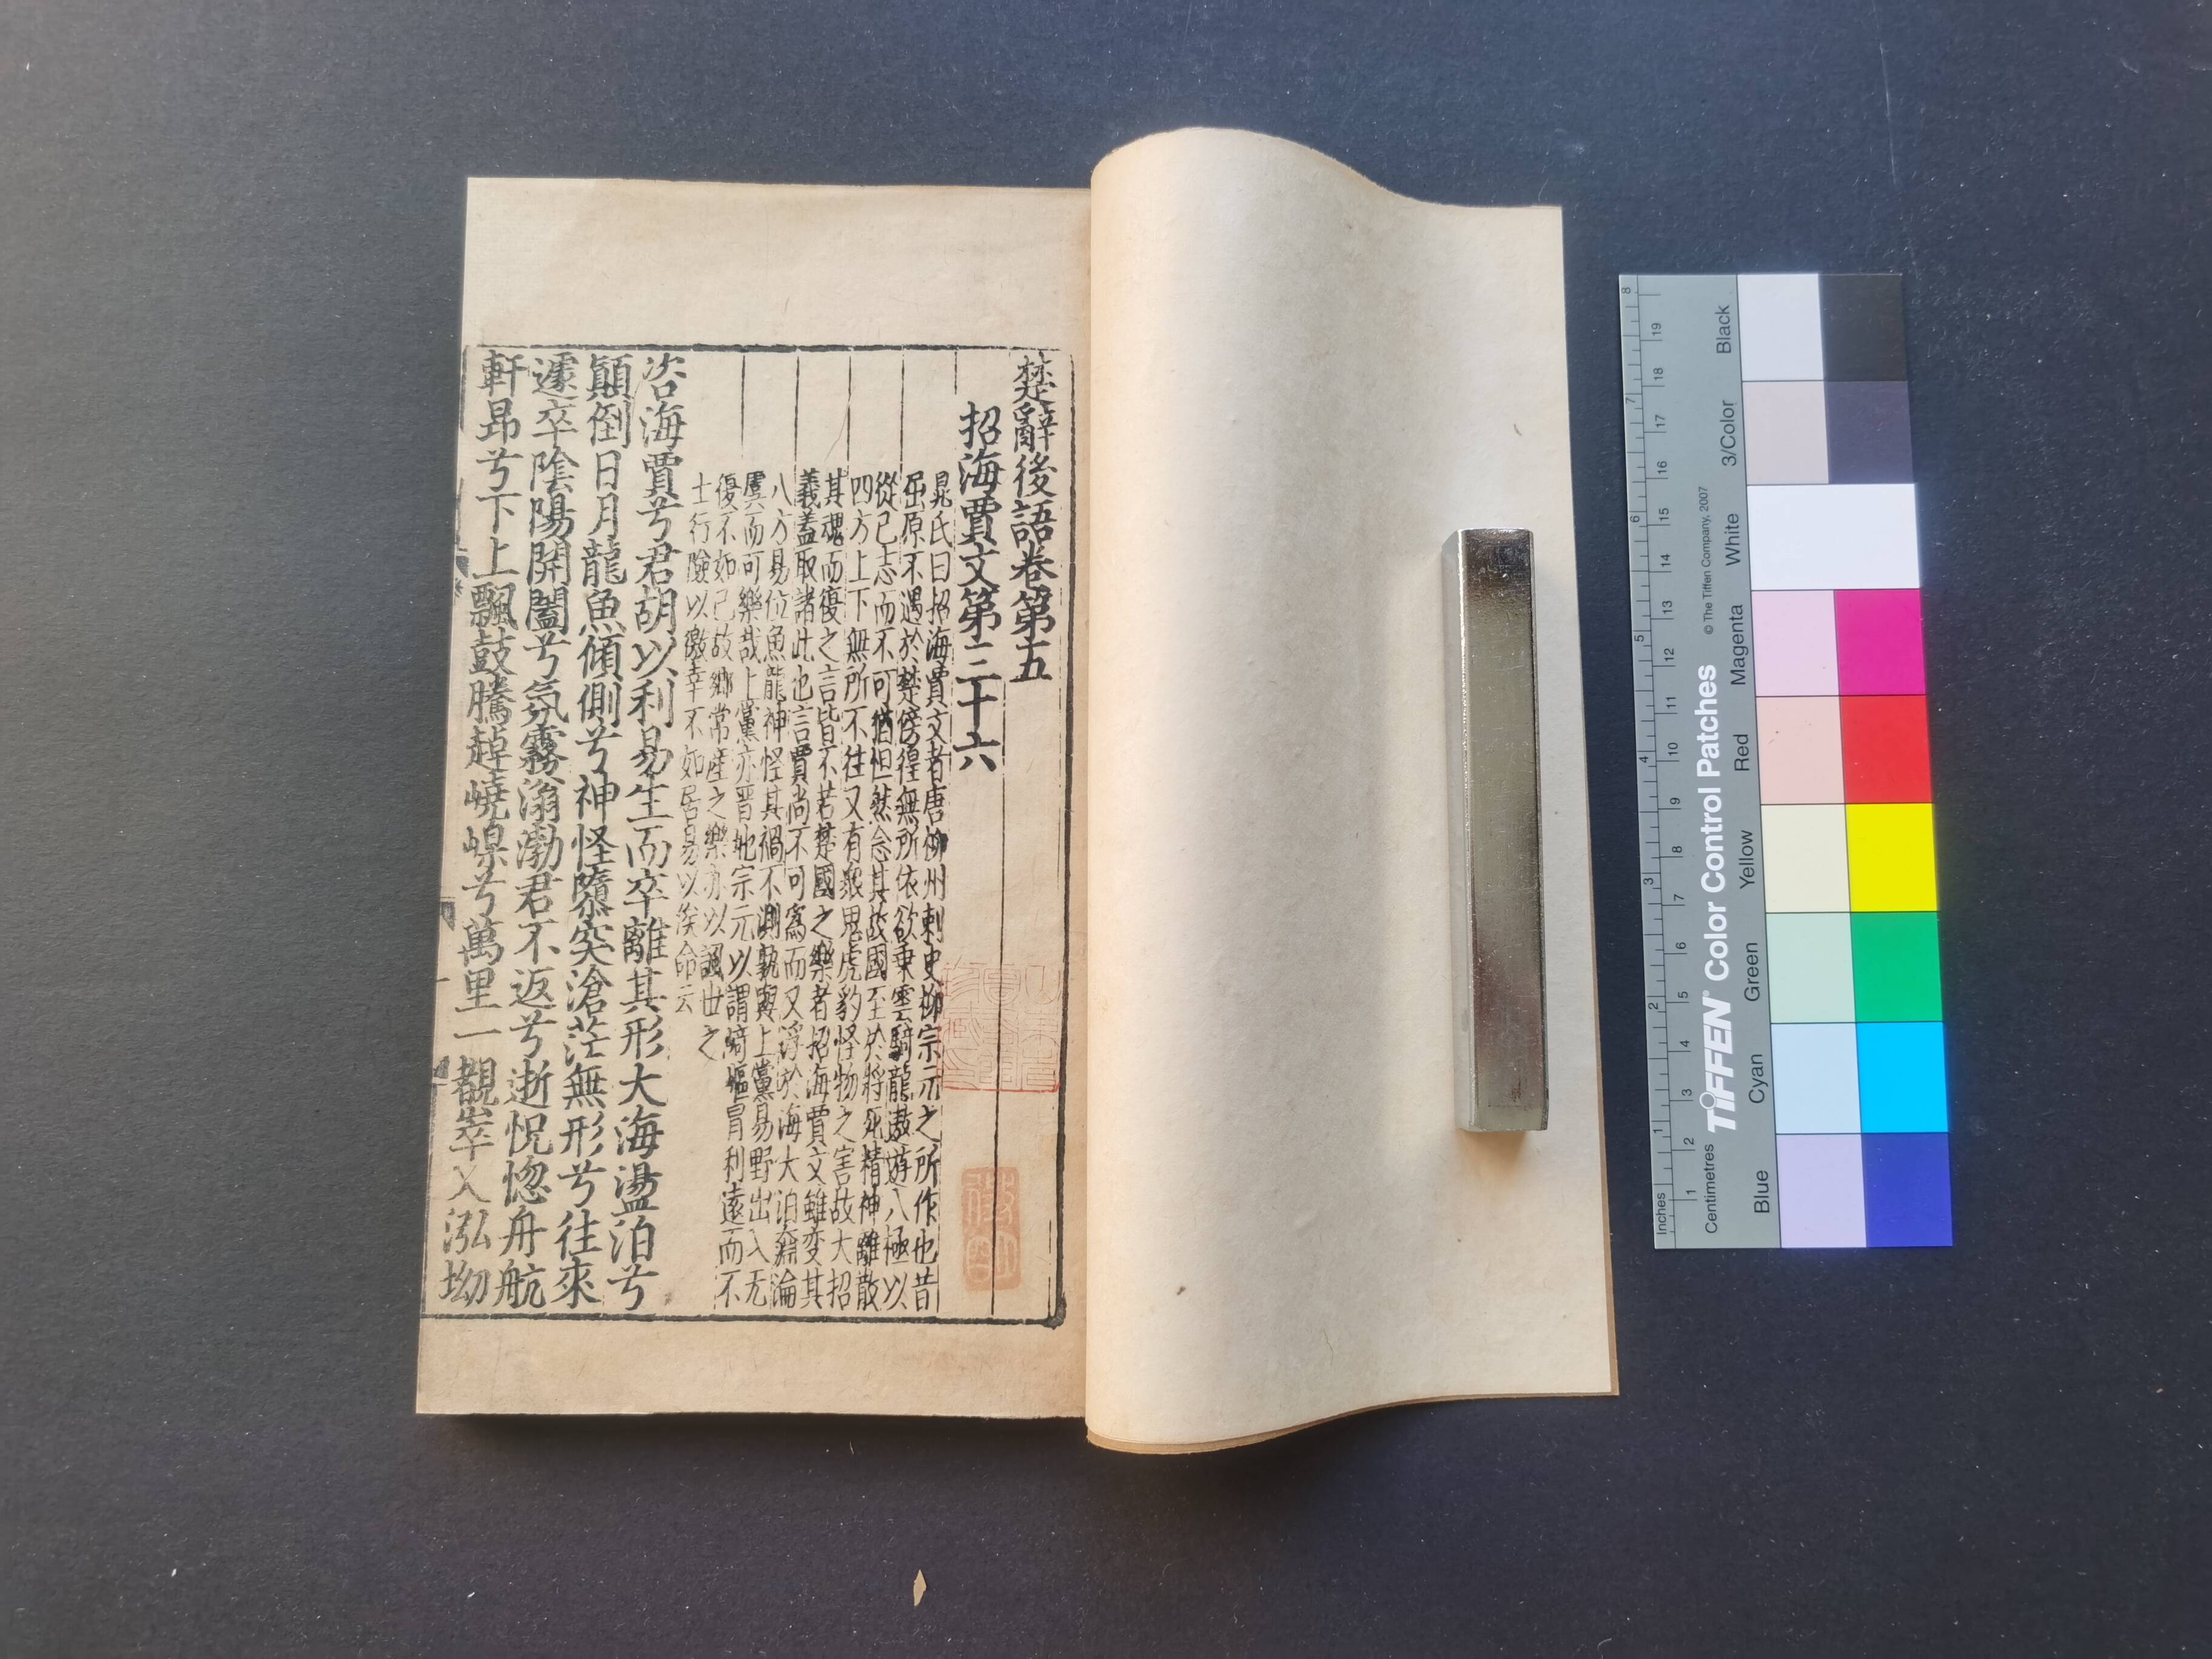 楚辭後語卷第五
招海賈文第三十六
晁氏曰招海賈文者唐柳州刺史柳宗元之所作也昔
屈原不遇於楚傍徨無所依欲乗雲騎龍遨遊八極以
從己志而不可猶怛然念其故國至於將死精神離散
四方上下無所不往又有衆鬼虎豹怪物之害故大招
其魂而復之言皆不若楚國之樂者招海賈文雖变其
義蓋取諸此也言賈尚不可爲而又浮於海大泊淵淪
八方易位魚龍神怪其禍不測孰與上黨易野出入无
虞而可樂哉上黨亦晋地宗元以謂崎嶇冒利遠而不
復不如己故鄉常産之樂亦以諷世之
士行險以徼幸不如居易以俟命云
咨海賈兮君胡以利易生而卒離其形大海盪泊兮
顛倒日月龍魚傾側兮神怪隳突滄茫無形兮往來
遽卒陰陽開闔兮氛霧滃渤君不返兮逝怳惚舟航
軒昂兮下上飄鼓騰趠嶢嵲兮萬里一覩崒乂泓坳
Inches
Centimetres
TIFFEN® Color Control Patches
© The Tiffen Company, 2007
Blue
Cyan
Green
Yellow
Red
Magenta
White
3/Color
Black
1 2 3 4 5 6 7 8
1 2 3 4 5 6 7 8 9 10 11 12 13 14 15 16 17 18 19